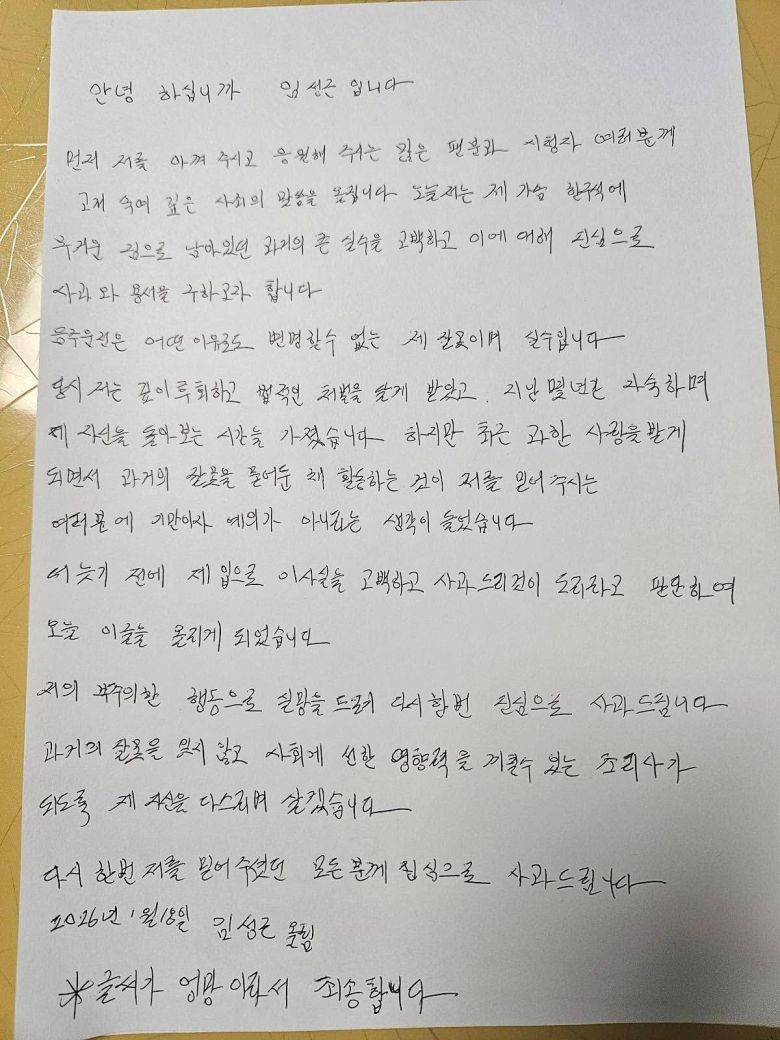 안녕 하십니까 임성근 입니다
먼저 저를 아껴 주시고 응원해 주시는 많은 팬분과 시청자 여러분께
고개 숙여 깊은 사죄의 말씀을 올립니다 오늘 저는 제 가슴 한구석에
무거운 짐으로 남아있던 과거의 큰 실수을 고백하고 이에 대해 진심으로
사과와 용서를 구하고자 합니다
음주운전은 어떤 이유로도 변명할수 없는 제 잘못이며 실수입니다
당시 저는 깊이 후회하고 법적인 처벌을 달게 받았고. 지난 몇년간 자숙하며
제 자신을 돌아보는 시간을 가졌습니다 하지만 최근 과한 사랑을 받게
되면서 과거의 잘못을 묻어둔 채 활동하는 것이 저를 믿어 주시는
여러분에 기만이자 예의가 아니라는 생각이 들었습니다
더 늦기 전에 제 입으로 이사실을 고백하고 사과드리것이 도리라고 판단하여
오늘 이글을 올리게 되었습니다
저의 부주의한 행동으로 실망을 드려 다시한번 진심으로 사과드립니다
과거의 잘못을 잊지 않고 사회에 선한 영향력을 끼칠수 있는 조리사가
되도록 제 자신을 다스리며 살겠습니다
다시 한번 저를 믿어 주셨던 모든 분께 진심으로 사과드립니다
2026년 1월 18일 임성근 올림
※글씨가 엉망 이라서 죄송합니다